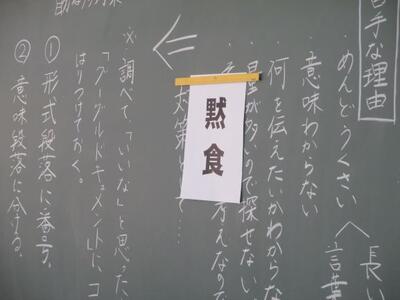 苦手な理由
・めんどうくさい
・意味わからない
・何を伝えたいかわからな
・量が多いので探せない
対策として…
長い
言葉
黙食
※調べて、「いいな」と思った
「グーグルドキュメント」に、コ
はりつけておく。
① 形式段落に番号。
② 意味段落に分ける。